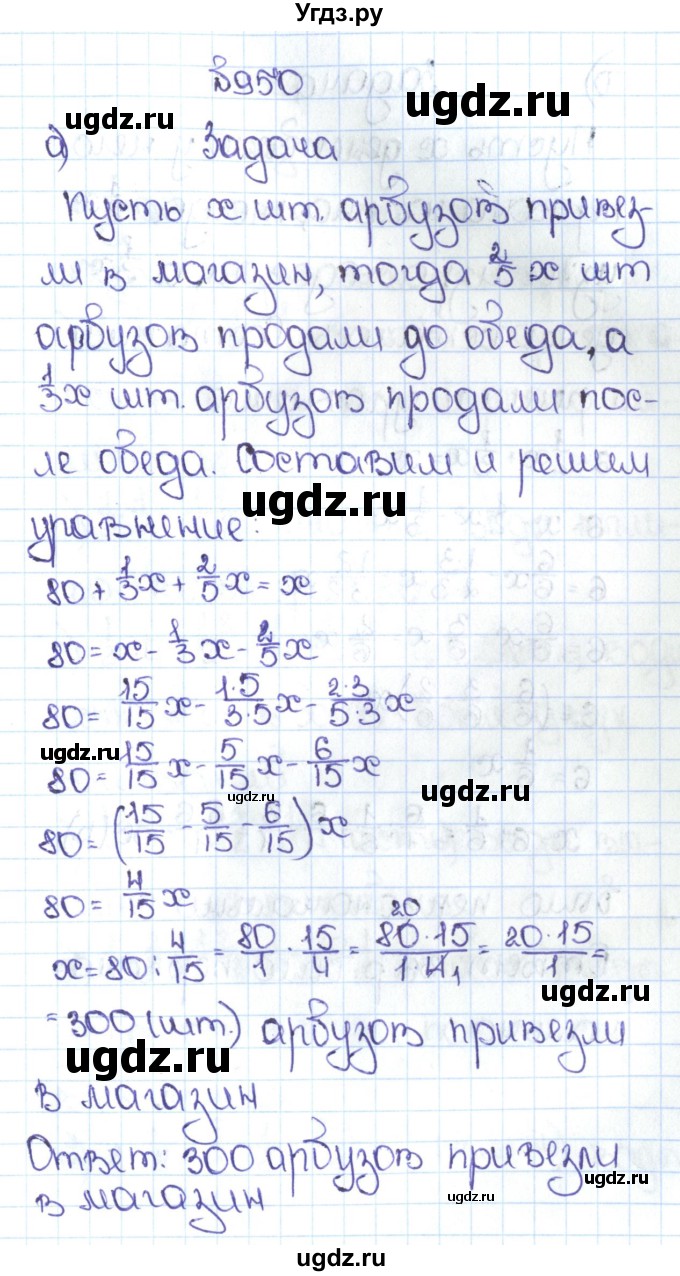 Угдз.ру
№950
ugdz.ru
ugdz.ru
а) Задача
Пусть x шт. арбузов привез-
ли в магазин, тогда 2/5 x шт
арбузов продали до обеда, а
1/3 x шт. арбузов продали пос-
ле обеда. Составим и решим
ugdz.ru
уравнение:
80 + 1/3 x + 2/5 x = x
80 = x - 1/3 x - 2/5 x
80 = 15/15 x - 1·5/3·5 x - 2·3/5·3 x
ugdz.ru
80 = 15/15 x - 5/15 x - 6/15 x
ugdz.ru
ugdz.ru
80 = (15/15 - 5/15 - 6/15) x
80 = 4/15 x
x = 80 : 4/15 = 80/1 · 15/4 = 20 80·15/1·4 1 = 20·15/1 =
ugdz.ru
= 300 (шт.) арбузов привезли
ugdz.ru
в магазин
Ответ: 300 арбузов привезли
ugdz.ru
в магазин
ugdz.ru
ugdz.ru